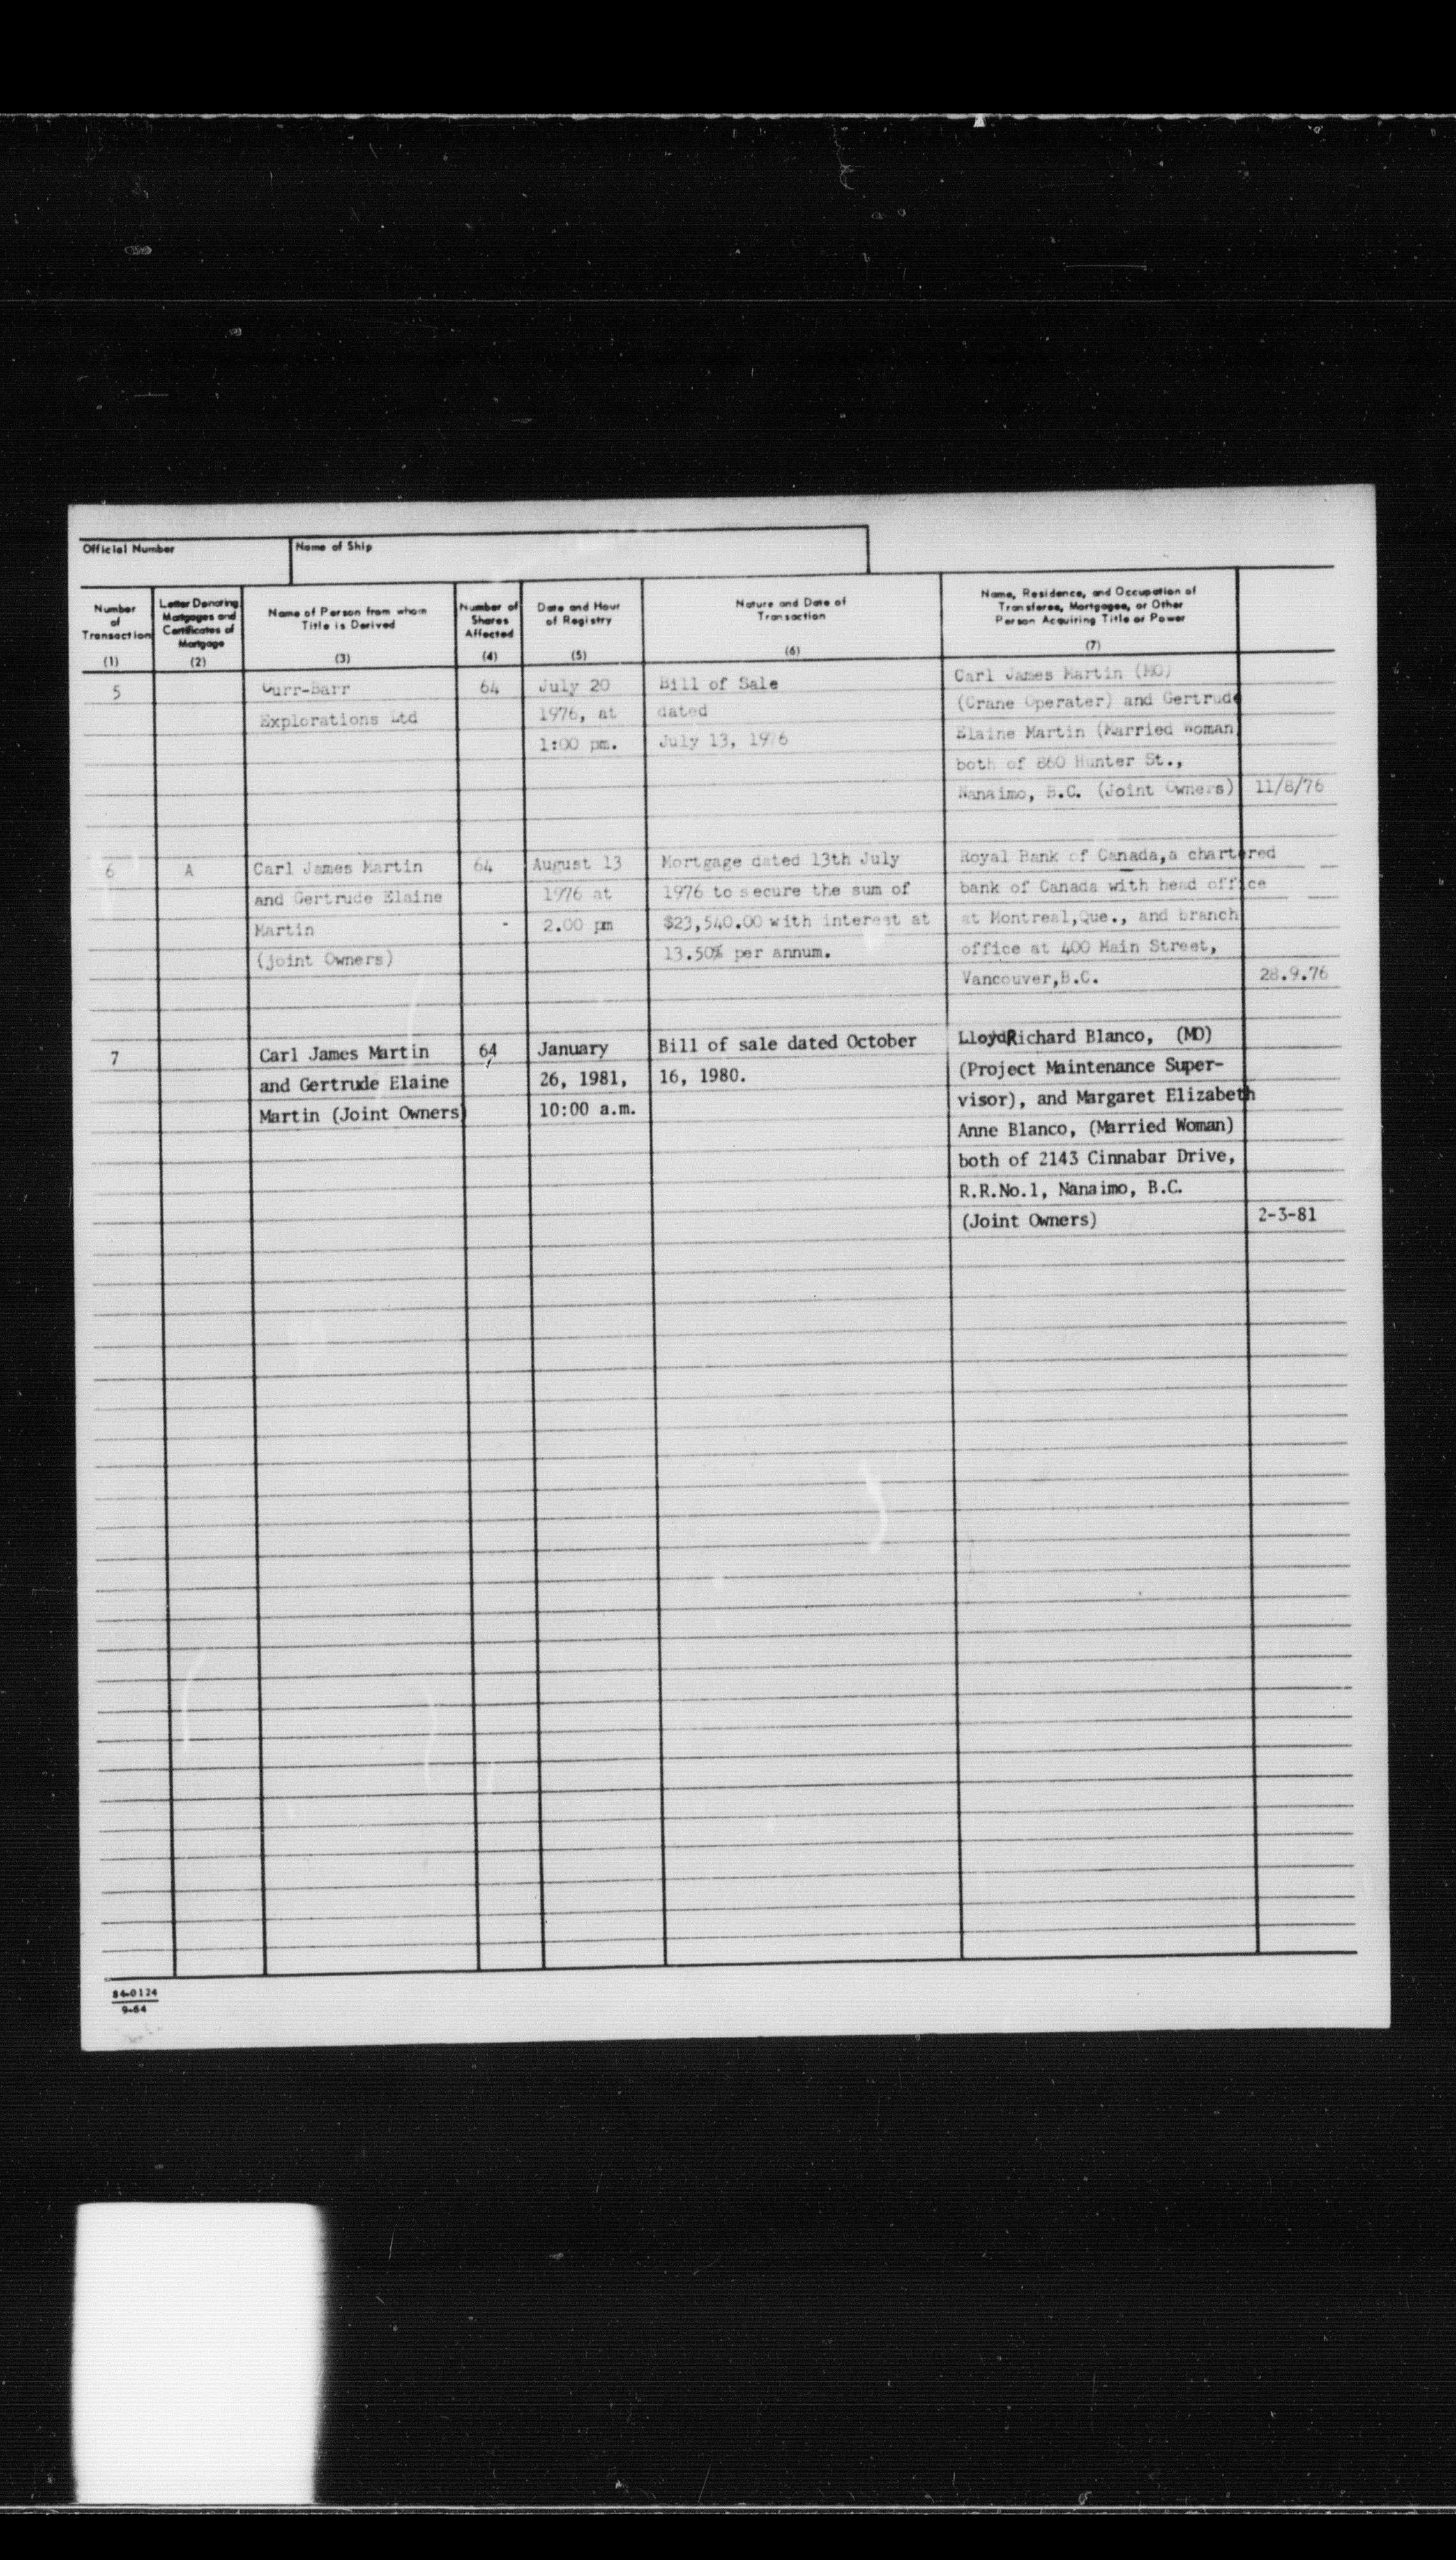 Official Number
Name of Ship
Number of Transaction (1)
Letter Denoting Mortgages and Certificates of Mortgage (2)
Name of Person from whom Title is Derived (3)
Number of Shares Affected (4)
Date and Hour of Registry (5)
Nature and Date of Transaction (6)
Name, Residence, and Occupation of Transferee, Mortgagee, or Other Person Acquiring Title or Power (7)
5
Curr-Barr
Explorations Ltd
64
July 20
1976, at
1:00 pm.
Bill of Sale
dated
July 13, 1976
Carl James Martin (MO)
(Crane Operater) and Gertrude
Elaine Martin (Married Woman)
both of 860 Hunter St.,
Nanaimo, B.C. (Joint Owners)
11/8/76
6
A
Carl James Martin
and Gertrude Elaine
Martin
(joint Owners)
64
-
August 13
1976 at
2.00 pm
Mortgage dated 13th July
1976 to secure the sum of
$23,540.00 with interest at
13.50% per annum.
Royal Bank of Canada,a chartered
bank of Canada with head office
at Montreal,Que., and branch
office at 400 Main Street,
Vancouver,B.C.
28.9.76
7
Carl James Martin
and Gertrude Elaine
Martin (Joint Owners)
64
January
26, 1981,
10:00 a.m.
Bill of sale dated October
16, 1980.
Lloyd Richard Blanco, (MO)
(Project Maintenance Super-
visor), and Margaret Elizabeth
Anne Blanco, (Married Woman)
both of 2143 Cinnabar Drive,
R.R.No.1, Nanaimo, B.C.
(Joint Owners)
2-3-81
84-0124
9-64